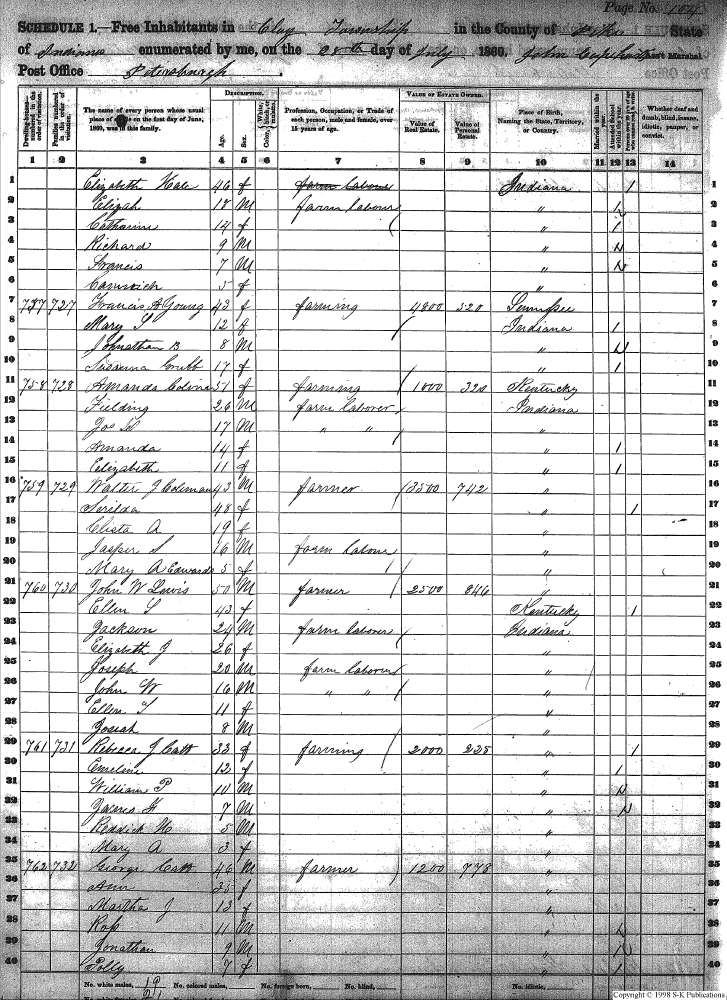 Page No. 104
SCHEDULE 1.—Free Inhabitants in Clay Township in the County of Pike State
of Indiana enumerated by me, on the day of July 1860. John Ass't Marshal
Post Office Petersburgh
Dwelling-houses—numbered in the order of visitation. Families numbered in the order of visitation. The name of every person whose usual place of abode on the first day of June, 1860, was in this family. DESCRIPTION. Age. Sex. Color, White, black, or mulatto. Profession, Occupation, or Trade of each person, male and female, over 15 years of age. VALUE OF ESTATE OWNED. Value of Real Estate. Value of Personal Estate. Place of Birth, Naming the State, Territory, or Country. Married within the year. Attended School within the year. Whether deaf and dumb, blind, insane, idiotic, pauper, or convict.
1 2 3 4 5 6 7 8 9 10 11 12 13 14
1 Elizabeth Hale 46 f farm labour Indiana / 1
2 Elizah 18 M farm labour " 1 2
3 Catharine 14 f " 1 3
4 Richard 9 M " 4
5 Francis 7 M " 5
6 5 f " 6
7 757 727 Francis A Young 43 f farming 4800 520 Tennessee 7
8 Mary S 12 f Indiana 1 8
9 Johnathan B 8 M " 9
10 Susanna 17 f " 1 10
11 758 728 Amanda 51 f farming 1000 320 Kentucky 11
12 Fielding 26 M farm laborer Indiana 12
13 Jos 17 M " " " 13
14 Amanda 14 f " 1 14
15 Elizabeth 11 f " 1 15
16 759 729 Walter J Coleman 43 M farmer 3500 742 " 16
17 Serilda 48 f " / 17
18 Clista A 19 f " 18
19 Jasper S 16 M farm labour " 19
20 Mary A Edwards 5 f " 20
21 760 730 John W Lewis 50 M farmer 2500 846 " 21
22 Ellen S 43 f Kentucky / 22
23 Jackson 24 M farm laborer Indiana 23
24 Elizabeth J 26 f " 24
25 Joseph 20 M farm laborer " 25
26 John W 16 M " " " 26
27 Ellen T 11 f " 27
28 Josiah 8 M " 28
29 761 731 Rebecca J Catt 33 f farming 2000 225 " / 29
30 Emeline 12 f " 1 30
31 William P 10 M " 31
32 James H 7 M " 32
33 Reddick H 5 M " 33
34 Mary A 3 f " 34
35 762 732 George Catt 46 M farmer 1200 778 " 35
36 Ann 35 f " 36
37 Martha J 13 f " 37
38 11 M " 38
39 Jonathan 9 M " 39
40 Polly 7 f " 1 40
No. white males, 19 No. colored males, No. foreign born, No. blind, No. idiotic,
21
Copyright © 1998 S-K Publications